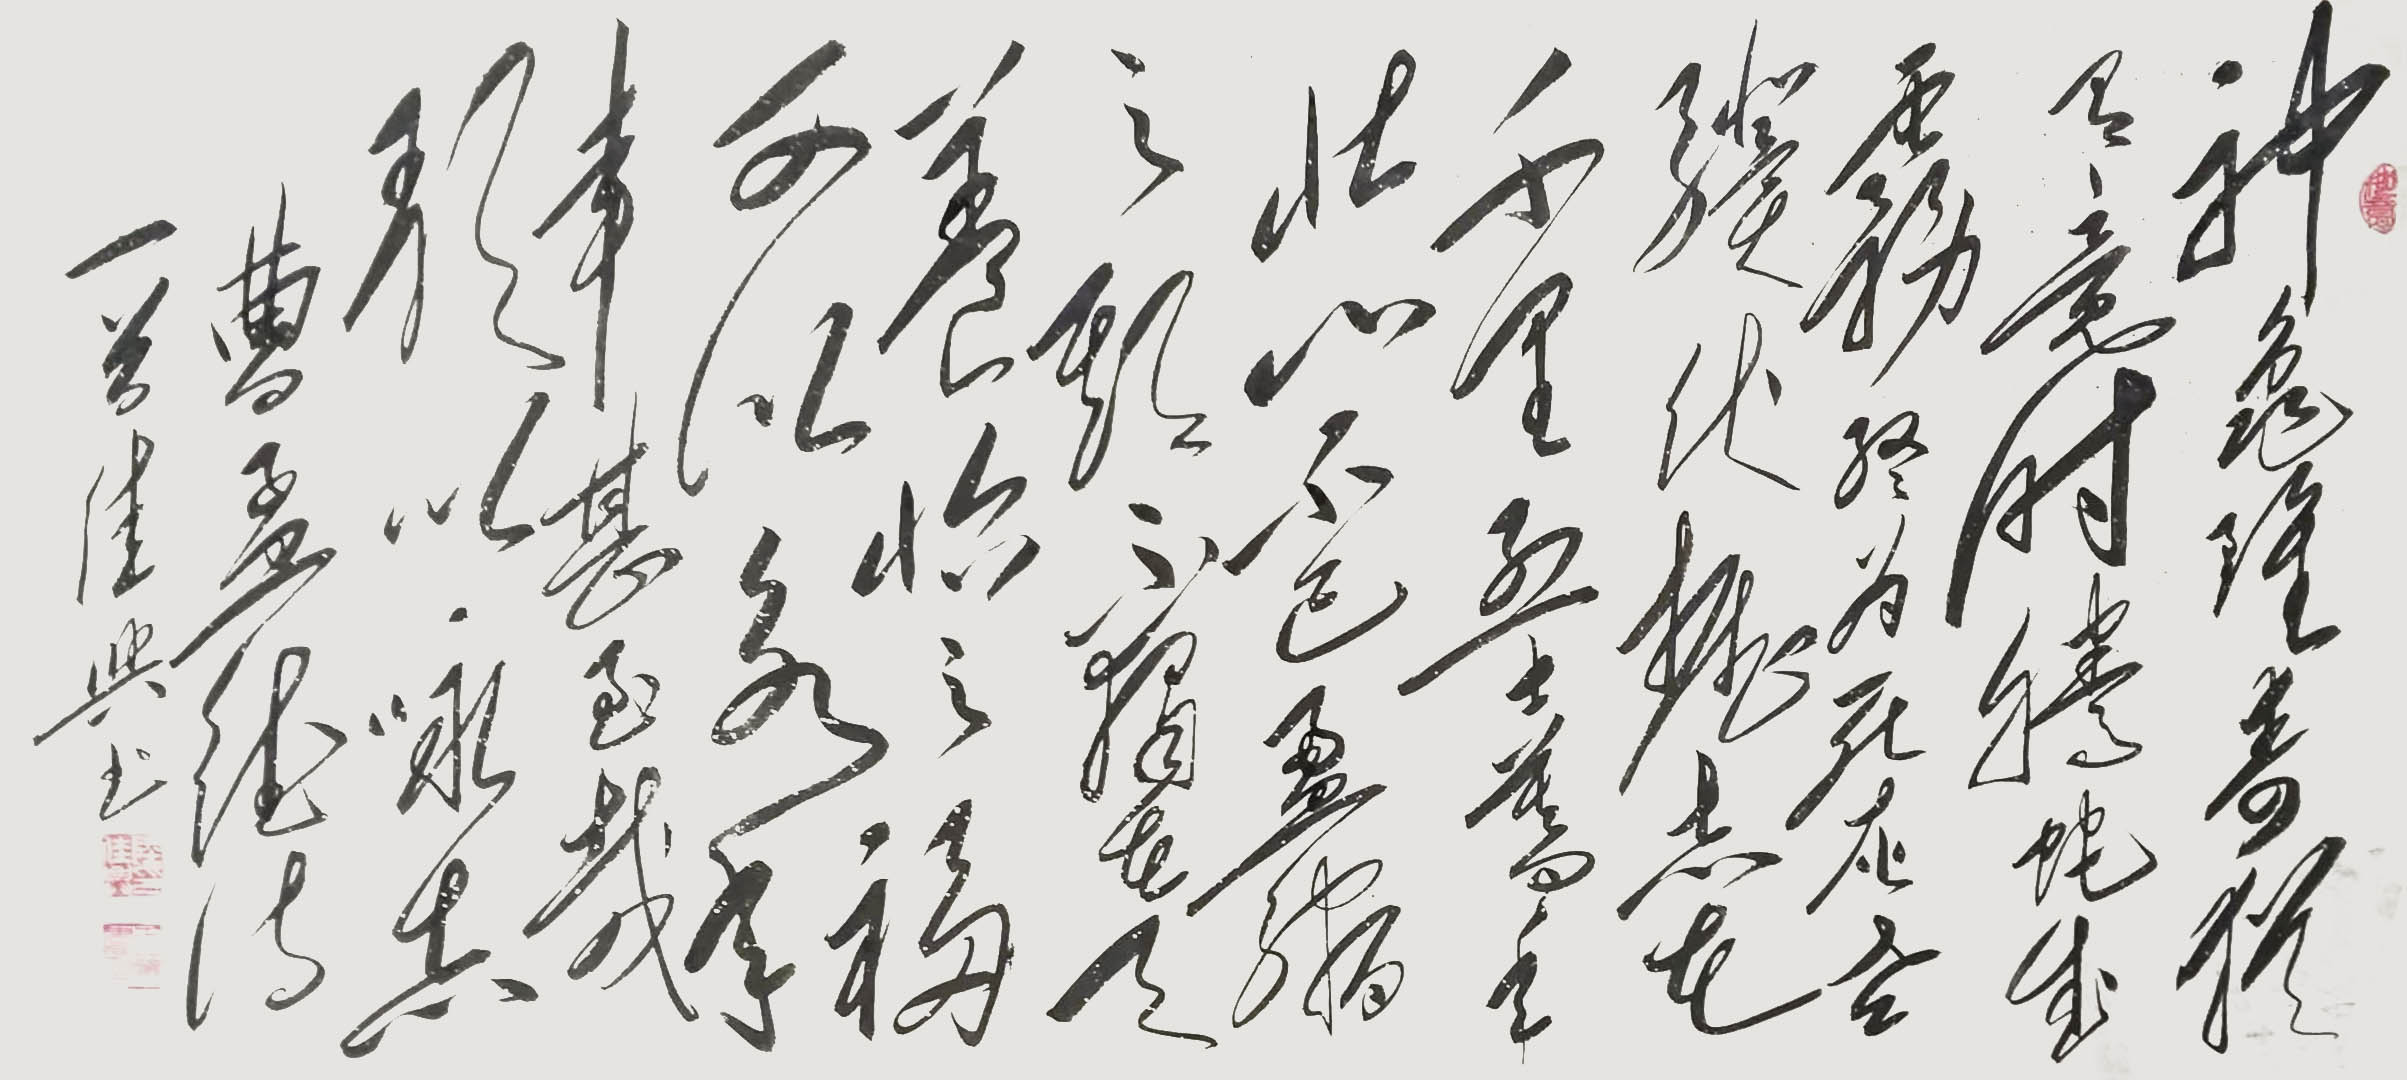 神龜雖壽猶
有竟时騰蛇成
霧終为死灰老
驥伏櫪志在
千里烈士暮年
壮心不已盈縮
之期不獨在天
養怡之福
可以永年
幸甚至哉
歌以咏志
曹孟德诗
一首佳興书